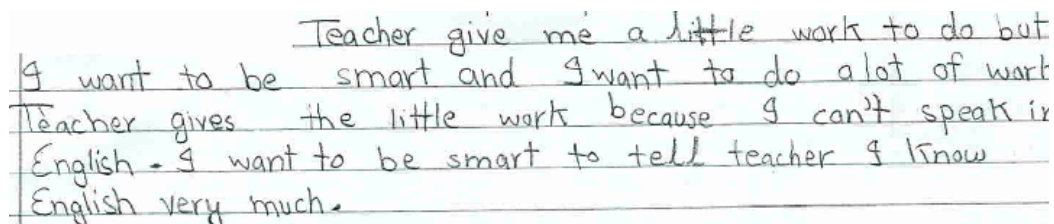 Teacher give me a little work to do but
I want to be smart and I want to do a lot of work
Teacher gives the little work because I can't speak in
English. I want to be smart to tell teacher I know
English very much.